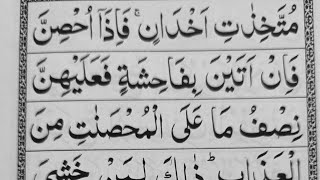 مُتَّخِذٰتِ اَخْدَانٍ ۚ فَاِذَاۤ اُحْصِنَّ
فَاِنْ اَتَيْنَ بِفَاحِشَةٍ فَعَلَيْهِنَّ
نِصْفُ مَا عَلَى الْمُحْصَنٰتِ مِنَ
الْعَذَابِ ؕ ذٰلِكَ لِمَنْ خَشِىَ